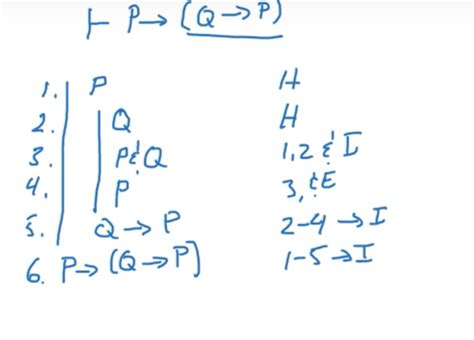 ⊢ P→(Q→P)
1. P H
2. Q H
3. P&Q 1,2 &I
4. P 3, &E
5. Q→P 2-4 →I
6. P→(Q→P] 1-5 →I